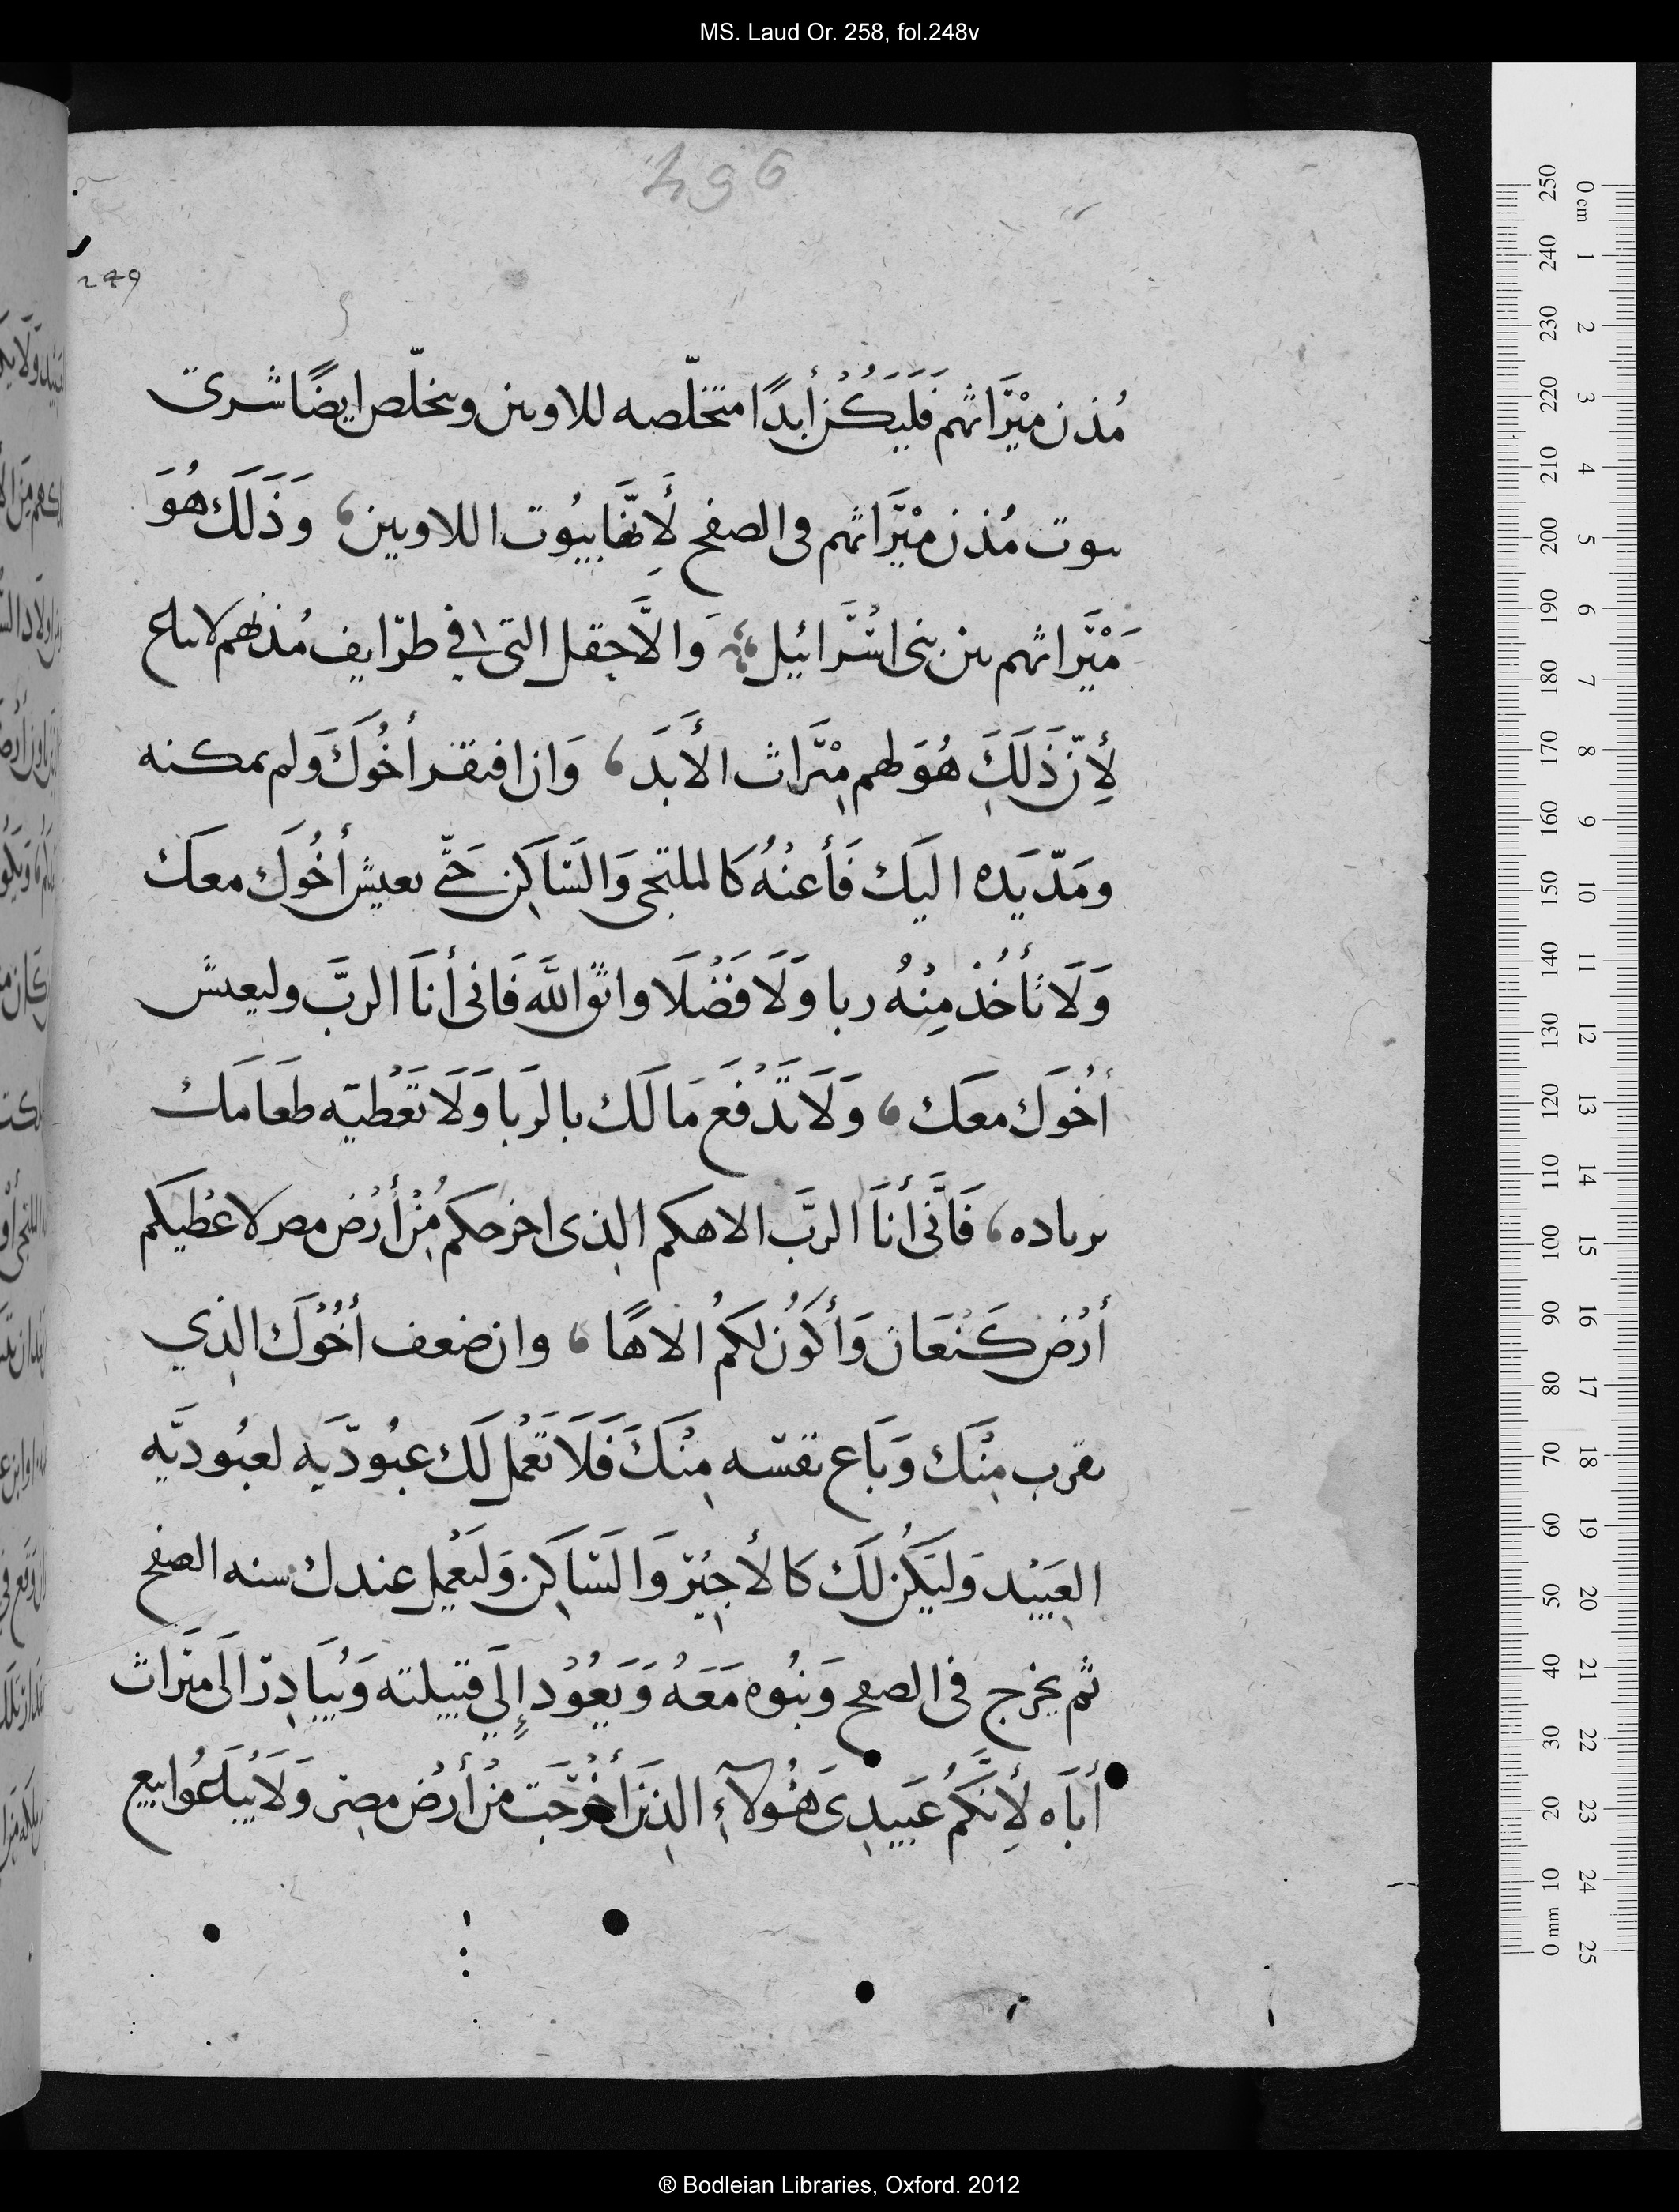 MS. Laud Or. 258, fol.248v
496
249
مُدن مِيْرَاثهم فَلَيَكُنْ أبدًا متخلّصه للاوىىن وىخلّص ايضًا شرى
ىىوت مُدن مِيْرَاثهم فى الصفح لِأَنهَّا بيُوت اللاويين، وَذَلَك هُوَ
مَيْرَاثهم ىىن بنى اسْرَائيل، وَالَّاحِقل التى فِي طرايف مُدنهم لاىىاع
لِأنّ ذَلَكَ هُوَ لهم مِيْرَاث الأَبَد، وَان افتقر أخُوكَ ولم ىمكنه
ومَدّ يَده اليَك فَأعنْهُ كا لملتجى وَالسَاكِن حَتّى ىعيش أخُوَك معَك
وَلَا تأخُذ مِنْهُ ربا وَلَا فَضْلَا واتق اللَّه فَانى أنَا الربَّ وليعيش
أخُوَك معَك، وَلَا تَدْفَع مَا لَك بالرَبا وَلَا تَعْطيَه طَعَامَك
ىرىاده، فَانَّى أنَا الربَّ الاهكم الذى اخرحكم مِنْ أرْض مصر لاعْطيكم
أرْض كَنْعَان وَأَكُوُن لكمُ الاهًا، وان ضعف أخُوْك الذي
ىقرب مِنْك وَبَاع نفسه مِنْكَ فَلَا تَعْمَل لَك عبُودّيَه لعبُوديَّه
العَبيْد وَليَكُن لَك كا لأجِيْر وَالسَاكِن وَلَيَعْمِل عندك سنه الصفح
ثم يخرج فى الصفح وَبنُوه مَعَهُ وَيَعُوْد إِلَي قبيلته وَيُبَادِر الَى ميَراث
أبَآه لِأنَّكمُ عَبيدِى هَؤُلآءِ الذِيَن أخْرَجَت مْن أرْض مصِر وَلَا يُبَاعُوا بيع
® Bodleian Libraries, Oxford. 2012